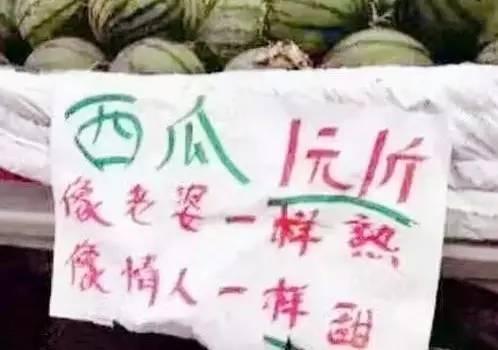 西瓜 1元1斤
像老婆一样熟
像情人一样甜